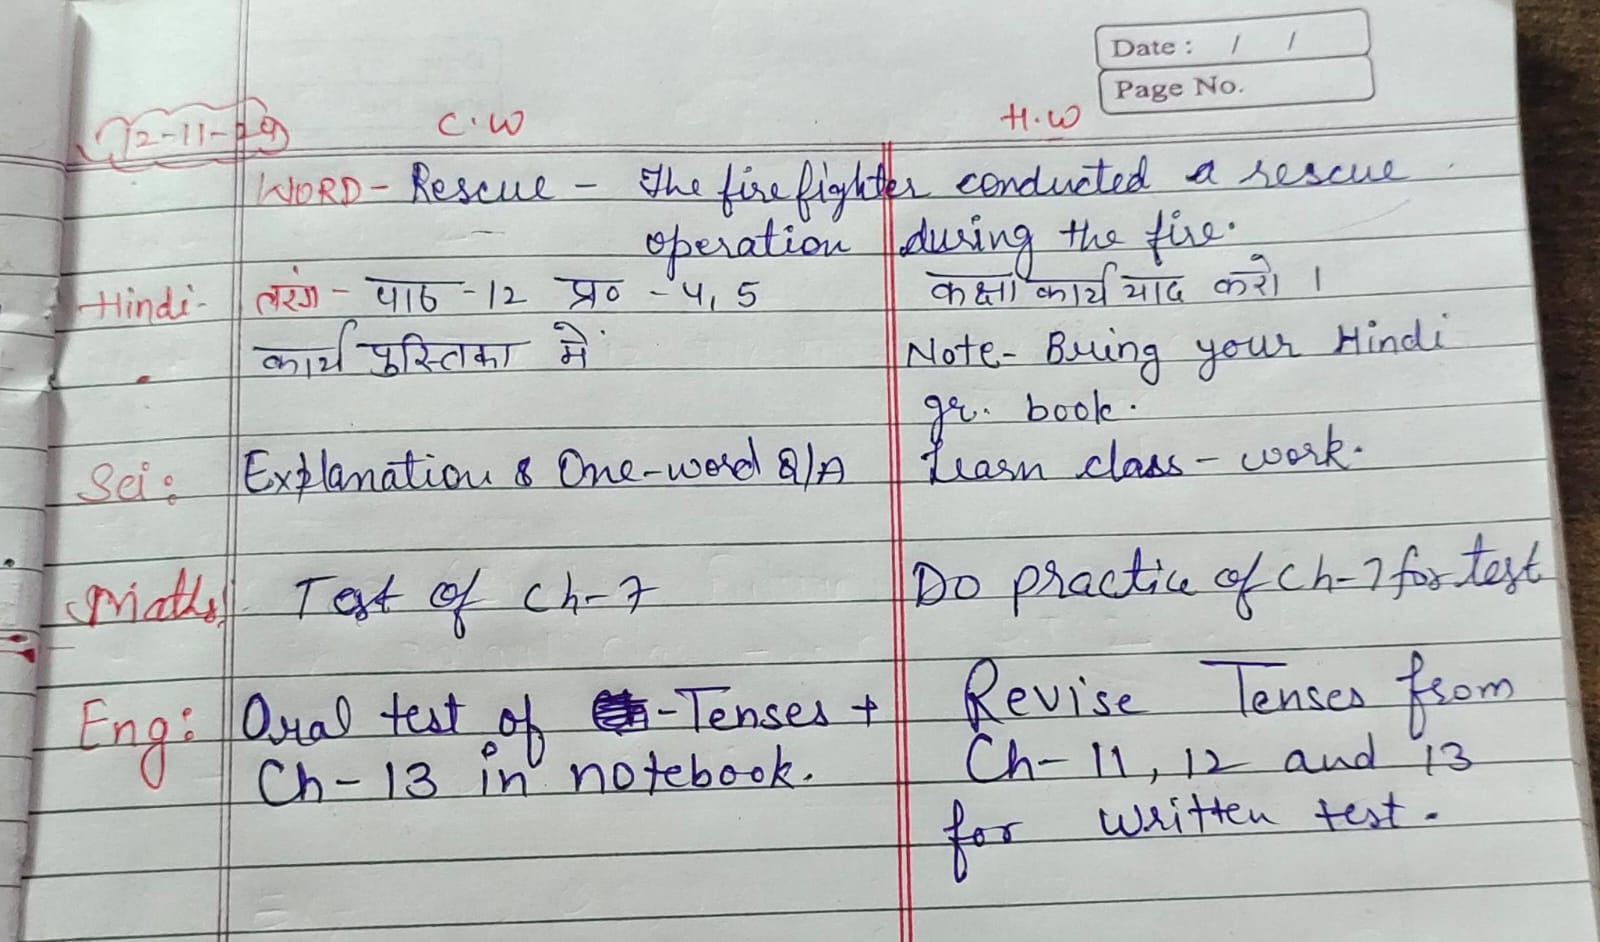 Date : / /
Page No.
C.W H.W
WORD - Rescue - The firefighter conducted a rescue
operation during the fire.
Hindi - तरंग - पाठ - 12 प्र० - 4, 5 कक्षा कार्य याद करो ।
कार्य पुस्तिका में Note - Bring your Hindi
gr. book.
Sci: Explanation & One-word Q/A Learn class-work.
Maths Test of Ch-7 Do practice of Ch-7 for test
Eng: Oral test of - Tenses + Revise Tenses from
Ch-13 in notebook. Ch- 11, 12 and 13
for written test.